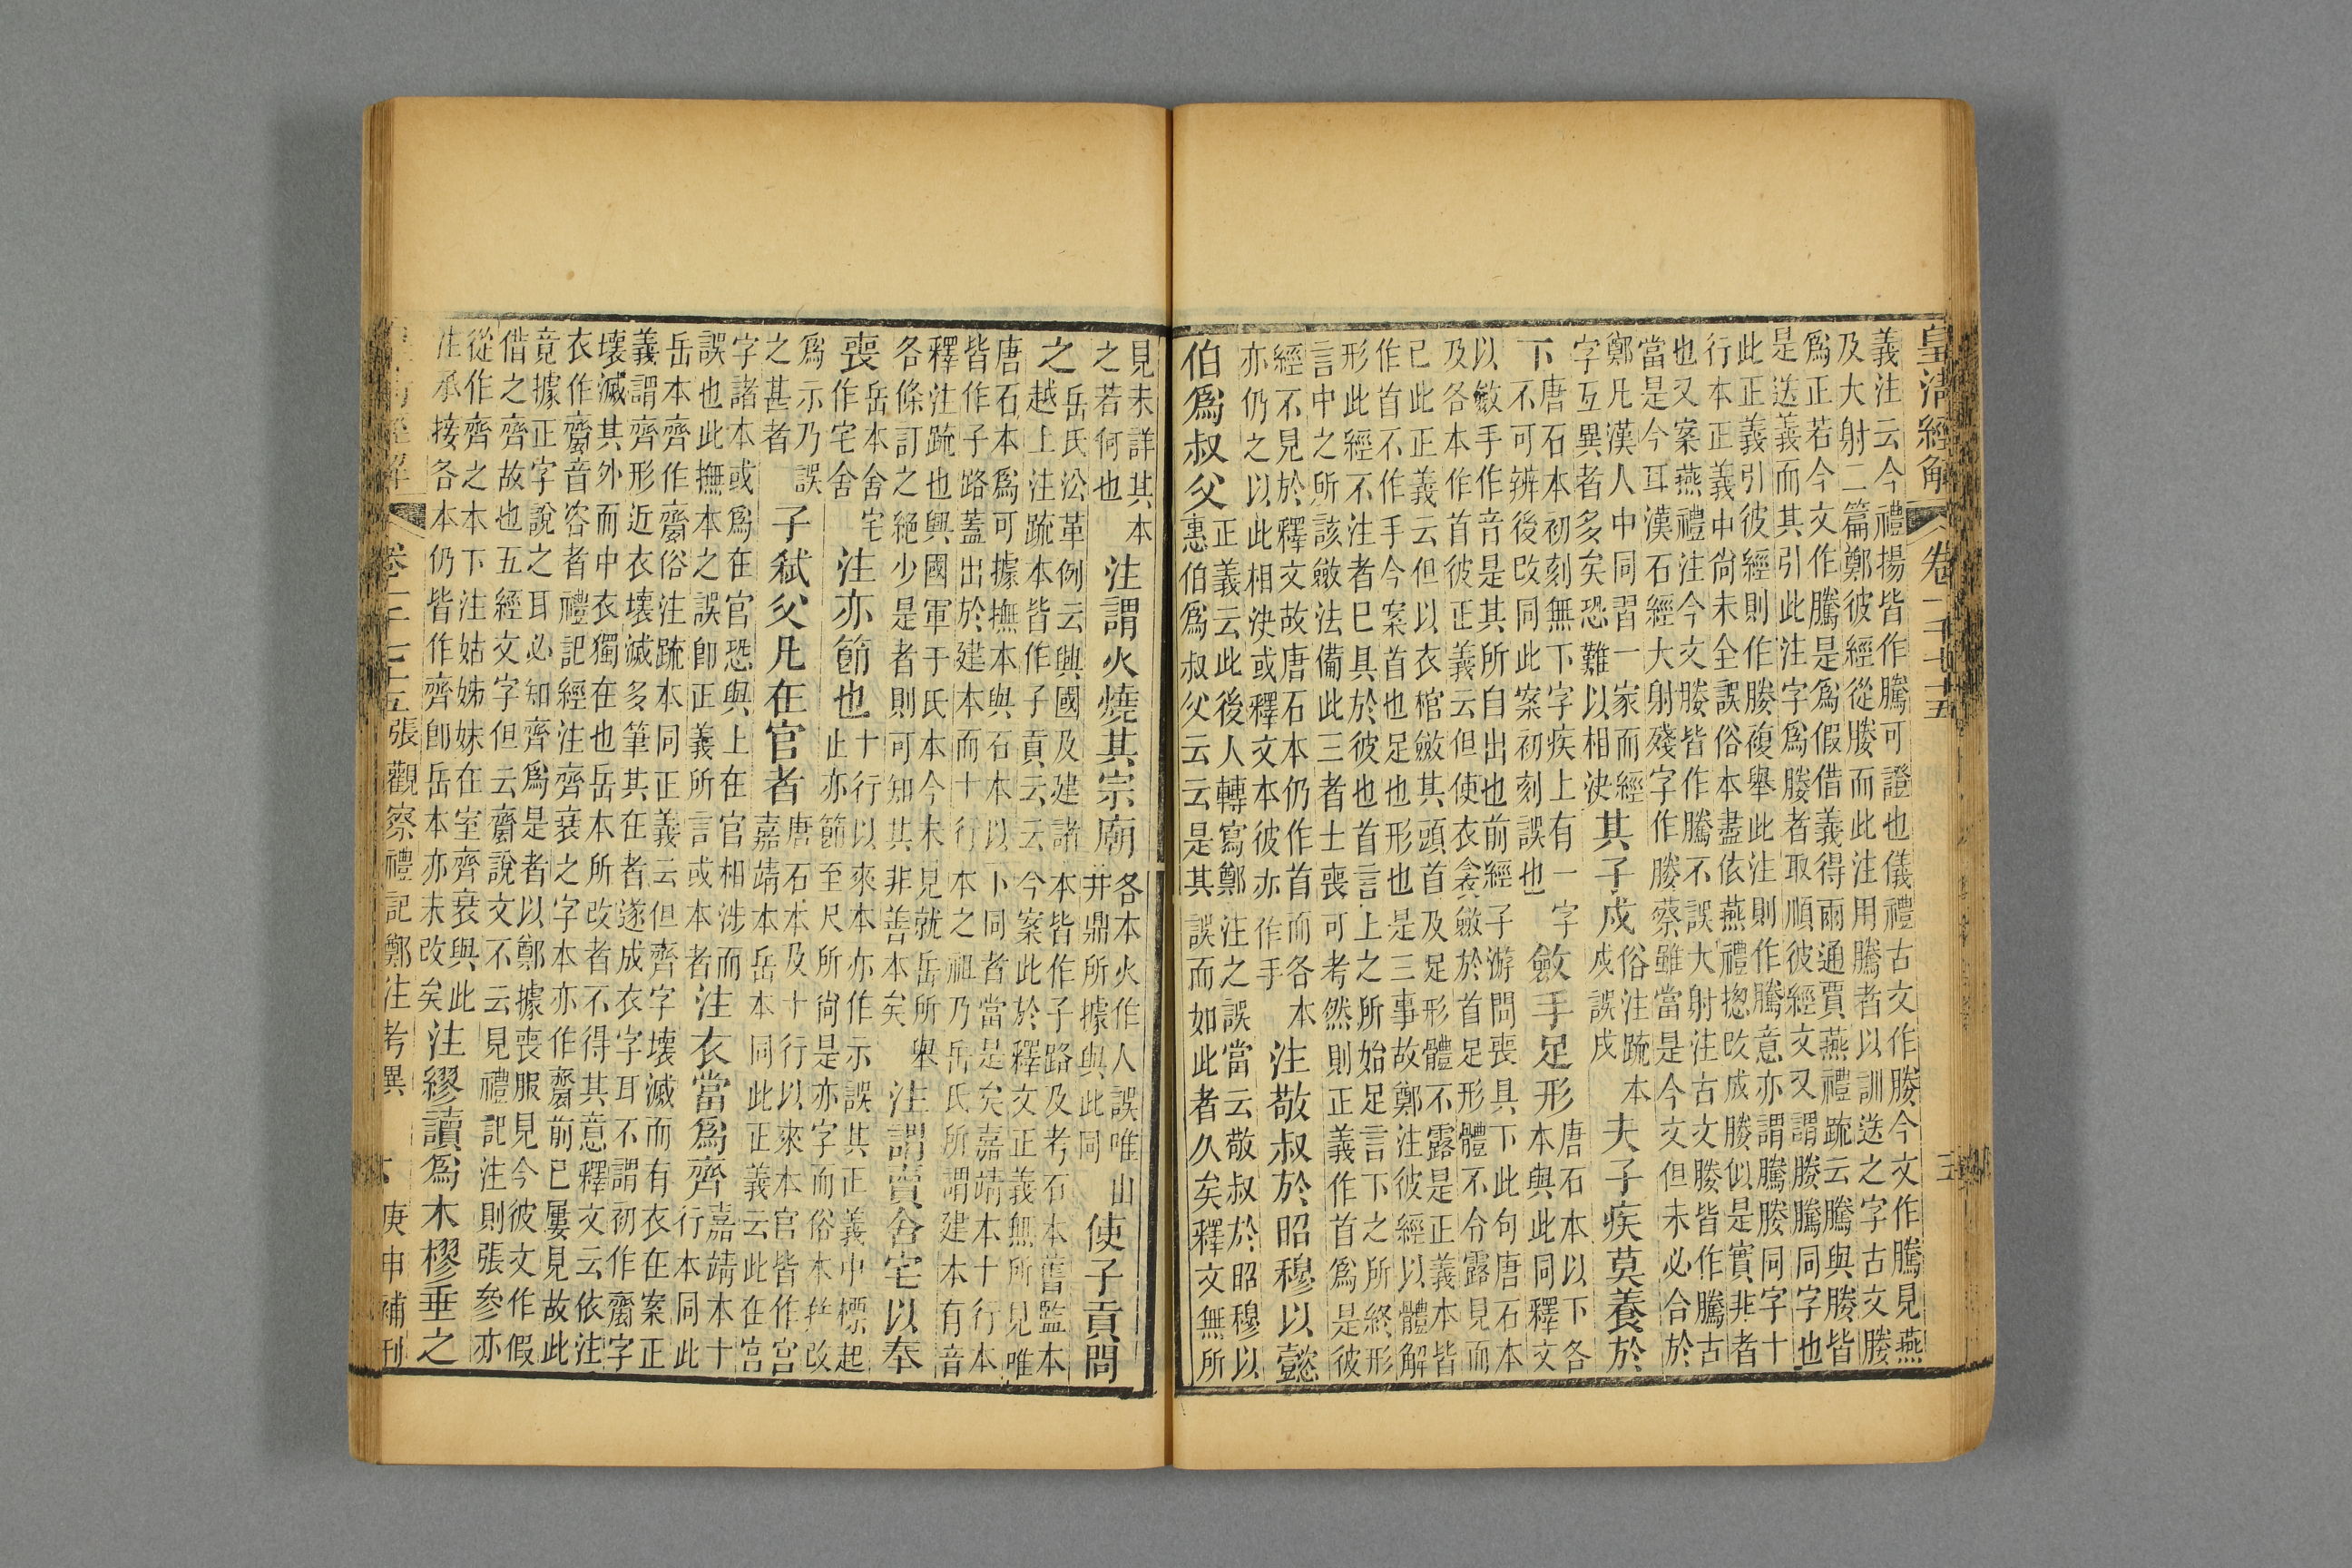 皇清經解 卷一千七十五 三
義注云今禮揚皆作騰可證也儀禮古文作媵今文作騰見燕
及大射二篇鄭彼經從媵而此注用騰者以訓送之字古文媵
爲正若今文作騰是爲假借義得兩通賈燕禮疏云騰與媵皆
是送義而其引此注字爲媵者取順彼經文又謂媵騰同字也
此正義引彼經則作媵複舉此注則作騰意亦謂騰媵同字十
行本正義中尚未全誤俗本盡依燕禮揔改成媵似是實非者
也又案燕禮注今文媵皆作騰不誤大射注古文媵皆作騰古
當是今耳漢石經大射殘字作媵蔡雖當是今文但未必合於
鄭凡漢人中同習一家而經
字互異者多矣恐難以相決
其子戍
俗注疏本
戍誤戌
夫子疾莫養於
下
唐石本初刻無下字疾上有一字
不可辨後改同此案初刻誤也
斂手足形
唐石本以下各
本與此同釋文
以斂手作音是其所自出也前經子游問喪具下此句唐石本
及各本作首彼正義云但使衣衾斂於首足形體不令露見而
已此正義云但以衣棺斂其頭首及足形體不露是正義本皆
作首不作手今案首也足也形也是三事故鄭注彼經以體解
形此經不注者已具於彼也首言上之所始足言下之所終形
言中之所該斂法備此三者士喪可考然則正義作首爲是彼
經不見於釋文故唐石本仍作首而各本
亦仍之以此相決或釋文本彼亦作手
注敬叔於昭穆以懿
伯爲叔父
正義云此後人轉寫鄭注之誤當云敬叔於昭穆以
惠伯爲叔父云云是其誤而如此者久矣釋文無所
見未詳其本
之若何也
注謂火燒其宗廟
各本火作人誤唯山
井鼎所據與此同
使子貢問
之
岳氏沿革例云興國及建諸本皆作子路及考石本舊監本
越上注疏本皆作子貢云云今案此於釋文正義無所見唯
唐石本爲可據撫本與石本以下同者當是矣嘉靖本十行本
皆作子路蓋出於建本而十行本之祖乃岳氏所謂建本有音
釋注疏也興國軍于氏本今未見就岳所舉
各條訂之絕少是者則可知其非善本矣
注謂賣舍宅以奉
喪
岳本舍宅
作宅舍
注亦節也
十行以來本亦作示誤其正義中標起
此亦節至尺所尚是亦字而俗本并改
爲示乃誤
之甚者
子弒父凡在官者
唐石本及十行以來本官皆作宮
嘉靖本岳本同此正義云此在宮
字諸本或爲在官恐與上在官相涉而
誤也此撫本之誤卽正義所言或本者
注衣當爲齊
嘉靖本十
行本同此
岳本齊作𪗋俗注疏本同正義云但齊字壞滅而有衣在案正
義謂齊形近衣壞滅多筆其在者遂成衣字耳不謂初作𪗋字
壞滅其外而中衣獨在也岳本所改者不得其意釋文云依注
衣作𪗋音咨者禮記經注齊衰之字本亦作𪗋前已屢見故此
竟據正字說之耳必知齊爲是者以鄭據喪服見今彼文作假
借之齊故也五經文字但云𪗋說文不云見禮記注則張參亦
從作齊之本下注姑姊妹在室齊衰與此
注承接各本仍皆作齊卽岳本亦未改矣
注繆讀爲木樛垂之
卷一千七十五 張觀察禮記鄭注考異 庚申補刊